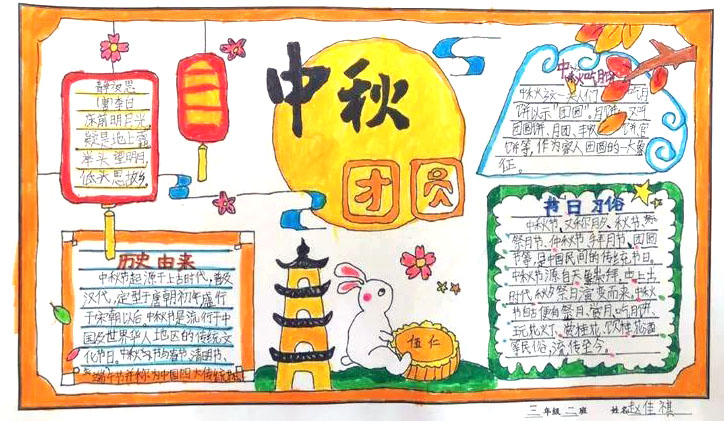 中秋
团圆
静夜思
(唐)李白
床前明月光,
疑是地上霜,
举头望明月,
低头思故乡。
中秋吃月饼
中秋这一天人们
饼以示"团圆"。月饼
团圆饼、月团、丰收
饼等,作为家人团圆的一大象
征。
历史由来
中秋节起源于上古时代,普及
汉代,定型于唐朝初年盛行
于宋朝以后。中秋节是流行于中
国及世界华人地区的传统文
化节日。中秋节与春节、清明节、
端午节并称为中国四大传统节日。
节日习俗
中秋节、又称月夕、秋节、
祭月节、仲秋节、拜月节、团圆
节等,是中国民间的传统节日。
中秋节源自天象崇拜,由上古
时代秋夕祭月演变而来,中秋
节自古便有祭月、赏月、吃月饼、
玩花灯、赏桂花、饮桂花酒
等民俗,流传至今。
伍仁
三年级二班 姓名赵佳祺